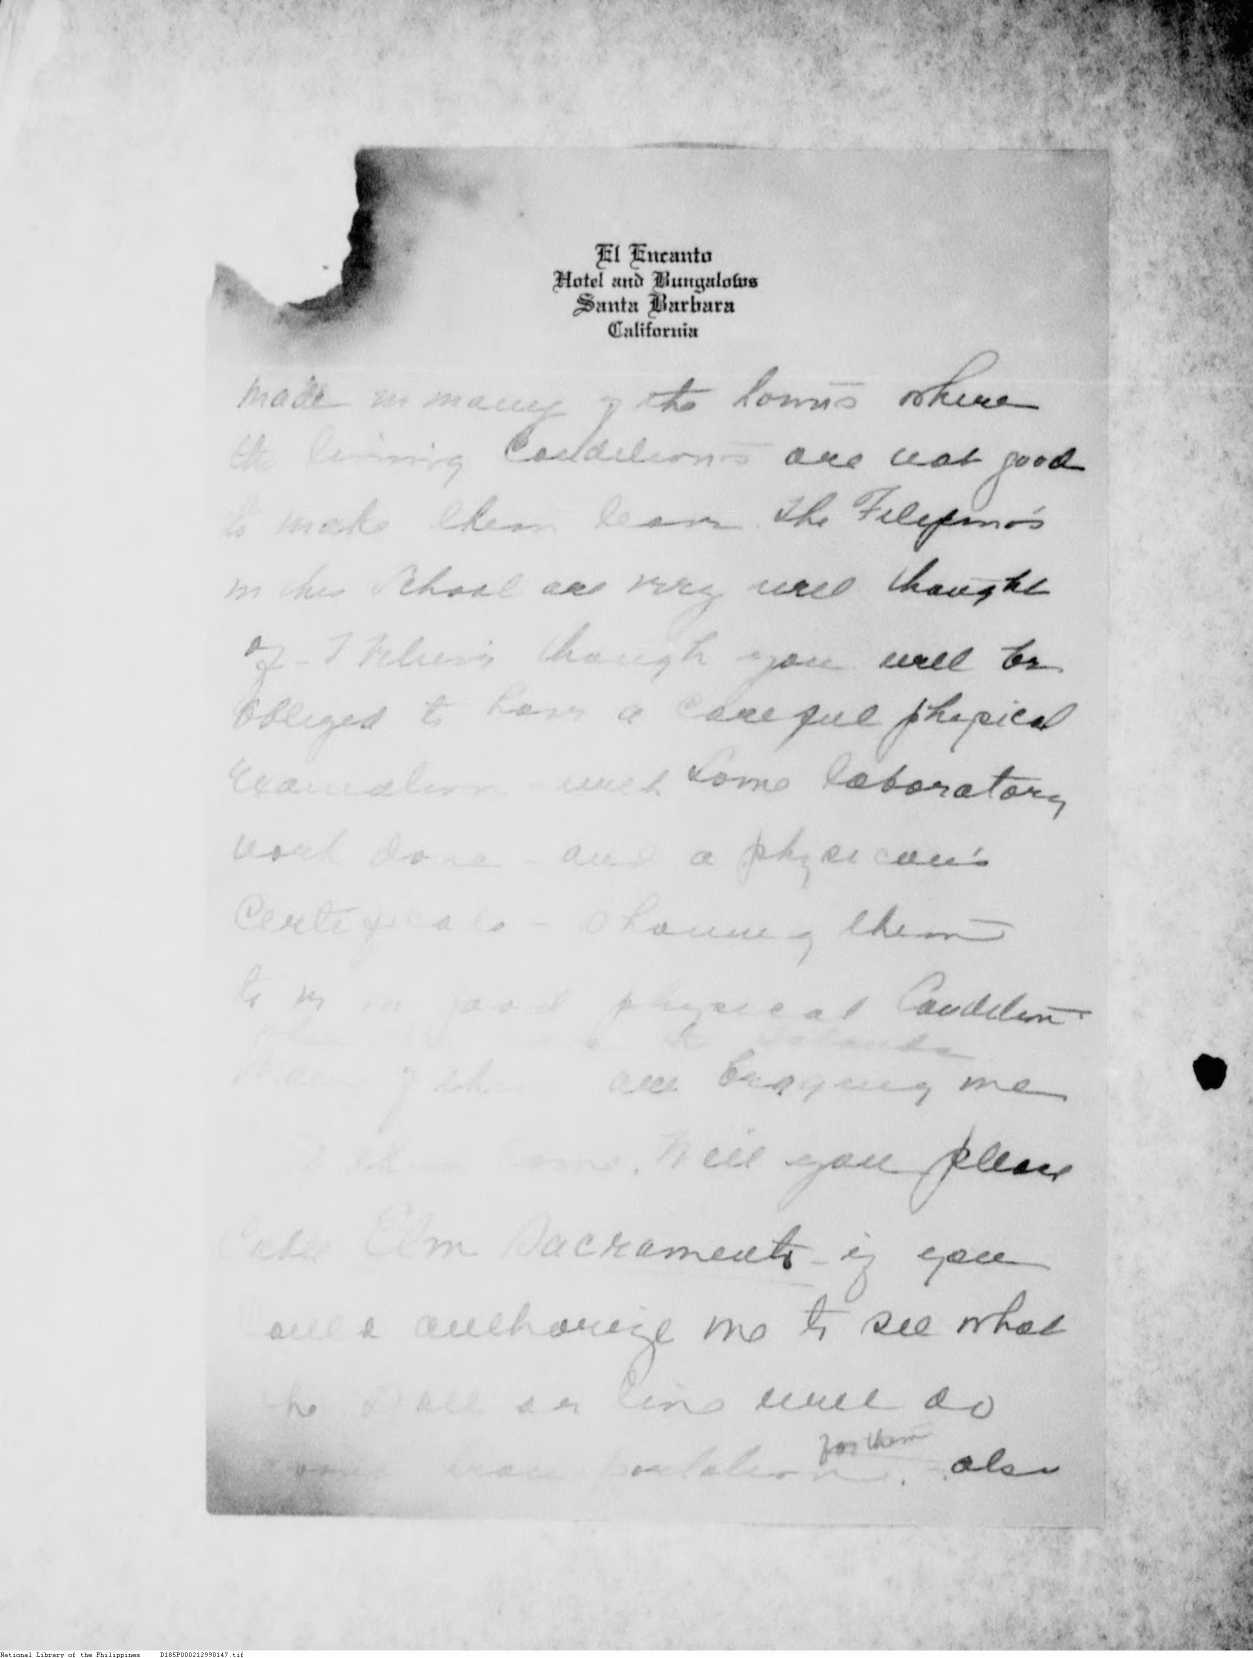 El Encanto
Hotel and Bungalows
Santa Barbara
California
made in many of the towns where
the living conditions are not good
to make them leave. The Filipino's
in this School are very well thought
of - I believe though you will be
obliged to have a careful physical
examination - with some laboratory
work done - and a physician's
Certificate - showing them
to be in good physical Condition
to Islands
Many of them are begging me
them home. Will you please
Cable Elm Sacramento - if you
authorize me to see what
the Dollar line will do
transportation for them. also
National Library of the Philippines D185P000212998147.tif